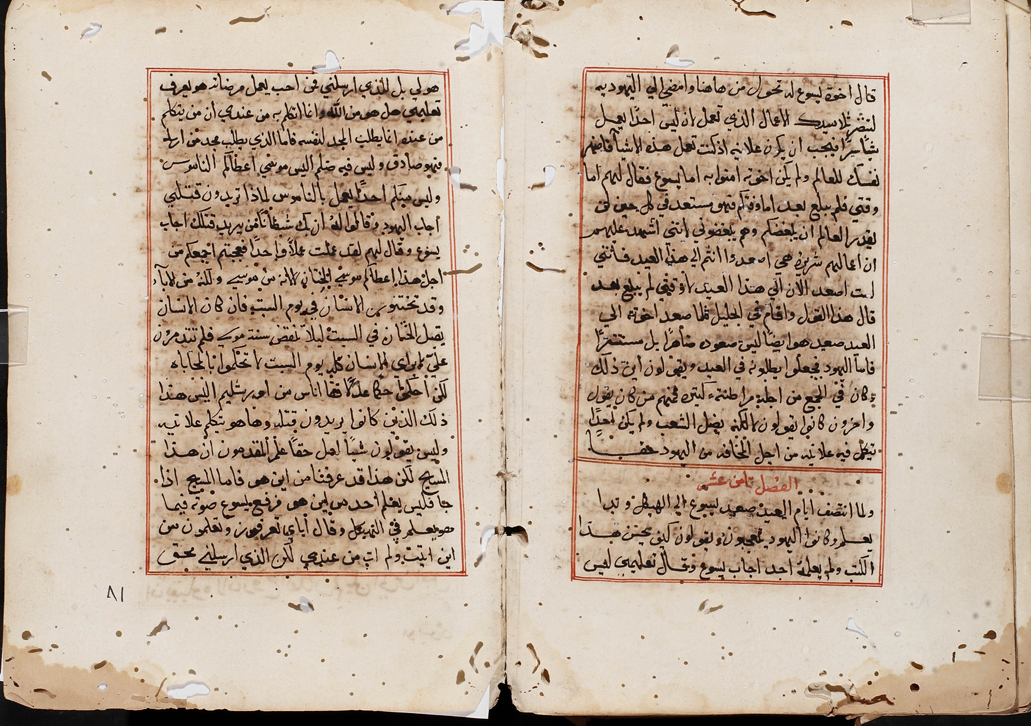 قال اخوة يسوع له تحول من هاهنا وامضي الي اليهوديه
لتنظر تلاميدك الاعمال الذي تعمل ان ليس احدا يعمل
شيا سرا فيحب ان يكون علانيه اذ كنت تعمل هذه الاشيا فاظهر
نفسك للعالم ولم يكن اخوته امنوا به اما يسوع فقال لهم اما
وقتي فلم يبلغ بعد اما وقتكم فهو مستعد في كل حين لن
يقدر العالم ان يبغضكم وهو يبغضوني لانني اشهد عليهم
ان اعمالهم شريره هي اصعدوا انتم الي هذا العيد فانني
لست اصعد الان الي هذا العيد لان وقتي لم يبلغ بعد
قال هذا القول واقام في الجليل فلما صعد اخوته الي
العيد صعد هو ايضا ليس صعوده ظاهرا بل مستتترا
فاما اليهود فجعلوا يطلبونه في العيد ويقولون اين ذلك
وكان في الجمع من اجله مراطنه كثيره فمنهم من كان يقول
واخرون كانوا يقولون لا لكنه يضل الشعب ولم يكن احدا
يتكلم فيه علانيه من اجل المخافه من اليهود
الفصل ثامن عشر
ولما انتصف ايام العيد صعد يسوع الي الهيكل وبدا
يعلم وكانوا اليهود يتعجبون ويقولون كيف يحسن هذا
الكتب ولم يعلمه احد اجاب يسوع وقال تعليمي ليس
هو لي بل للذي ارسلني فمن احب يعمل مرضاته هو يعرف
تعليمي هل هو من الله وانا اتكلم به من عندي ان من يتكلم
من عنده انما يطلب المجد لنفسه فاما الذي يطلب مجد من ارسله
فهو صادق وليس فيه ظلم اليس موسي اعطاكم الناموس
وليس منكم احدا يعمل بالناموس لماذا تريدون قتلي
اجاب اليهود وقالوا له ان بك شيطانا فمن يريد قتلك اجاب
يسوع وقال لهم لقد عملت عملا واحدا فعجبتم اجمعكم من
اجل هذا اعطاكم موسي الختان لا لانه من موسي ولكنه من الابا
وقد تختنون الانسان في يوم السبت فان كان الانسان
يقبل الختان في السبت ليلا تنقض سنة موسي فلم تتذمرون
علي لابراي الانسان كله يوم السبت لا تحكموا بالمحاباه
لكن احكموا حكما عدلا فقال اناس من اورشليم اليس هذا
ذلك الذين كانوا يريدون قتله وها هو يتكلم علانيه
وليس يقولون شيا لعل حقا علم المقدمون ان هذا
المسيح لكن هذا قد عرفنا من اين هو فاما المسيح اذا
جا فليس يعلم احد من اين هو فرفع يسوع صوته فيما
هو يعلم في الهيكل وقال اياي تعرفون وتعلمون من
اين اتيت ولم ات من عندي لكن الذي ارسلني محق
٨١